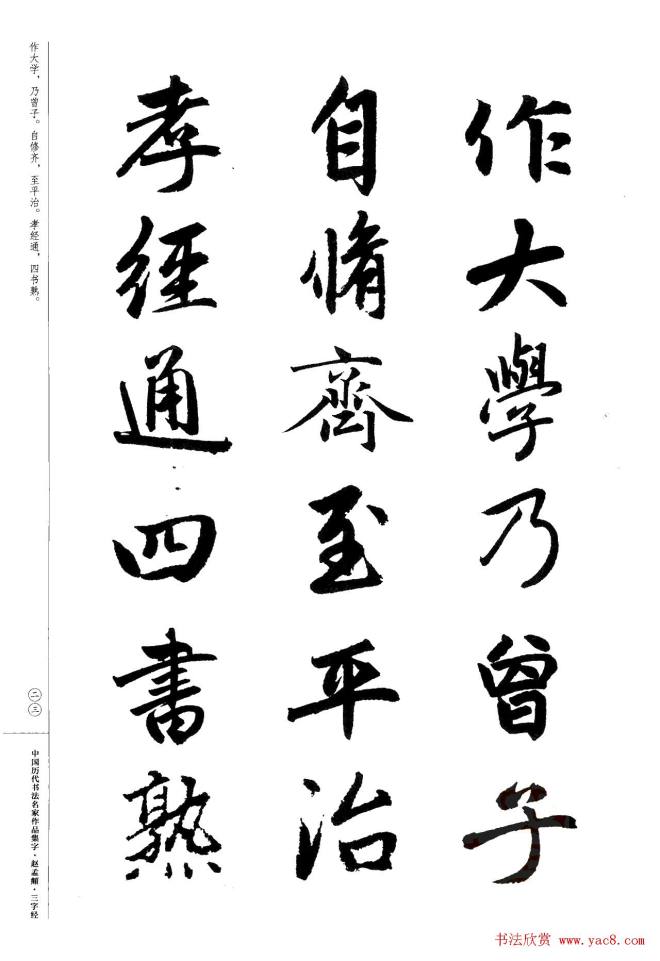 作大學乃曾子
自脩齊至平治
孝經通四書熟
作大学，乃曾子。自修齐，至平治。孝经通，四书熟。
二三
中国历代书法名家作品集字·赵孟頫·三字经
书法欣赏 www.yac8.com